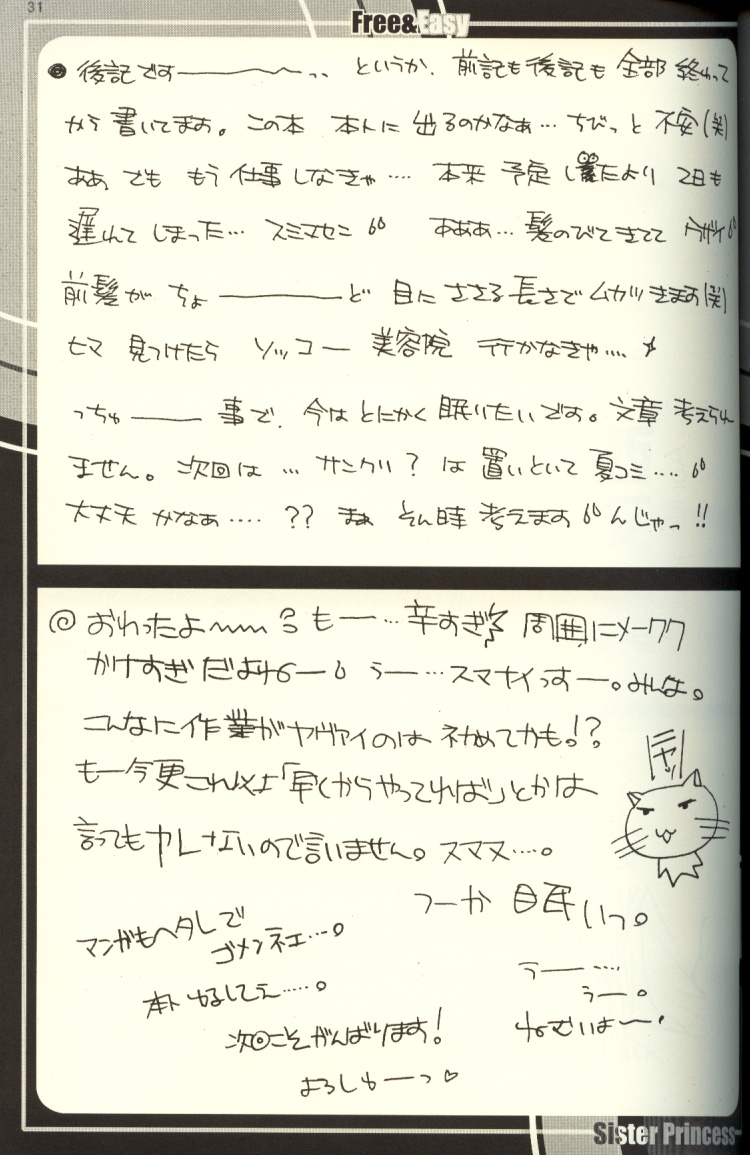 31
Free&Easy
後記です――――〜‥ というか、前記も後記も全部終わって
から書いてます。この本 本トに出るのかなぁ… ちびっと不安(笑)
ああ でも もう仕事しなきゃ…. 本来 予定してたより 2日も
遅れてしまった… スミマセン あああ… 髪のびてきてて ウザイ
前髪が ちょ――――ど 目に ささる長さで ムカツキます(笑)
ヒマ 見つけたら ソッコー 美容院 行かなきゃ….
っちゅ――― 事で、今は とにかく 眠りたいです。文章 考えられ
ません。次回は … サンクリ? は 置いといて 夏コミ….
大丈夫 かなぁ….. ?? まぁ そん時 考えます んじゃっ!!
◎ おわったよ〜〜〜 も―…辛すぎ 周囲にメーワク
かけすぎだよオレ― う―…スマナイっす―。みんな。
こんなに作業がヤヴァイのは 初めてかも!?
も―今更これ以上「早くからやってれば」とかは
言ってもヤレないので言いません。スマヌ….。
ニヤッ
つーか 眠いっ。
マンガもヘタレで
ゴメンネェ….。
う――….
う―。
ねむいよ〜.
本ト ゆるしてぇ…..。
次回こそがんばります!
よろしゅ―っ♡
Sister Princess